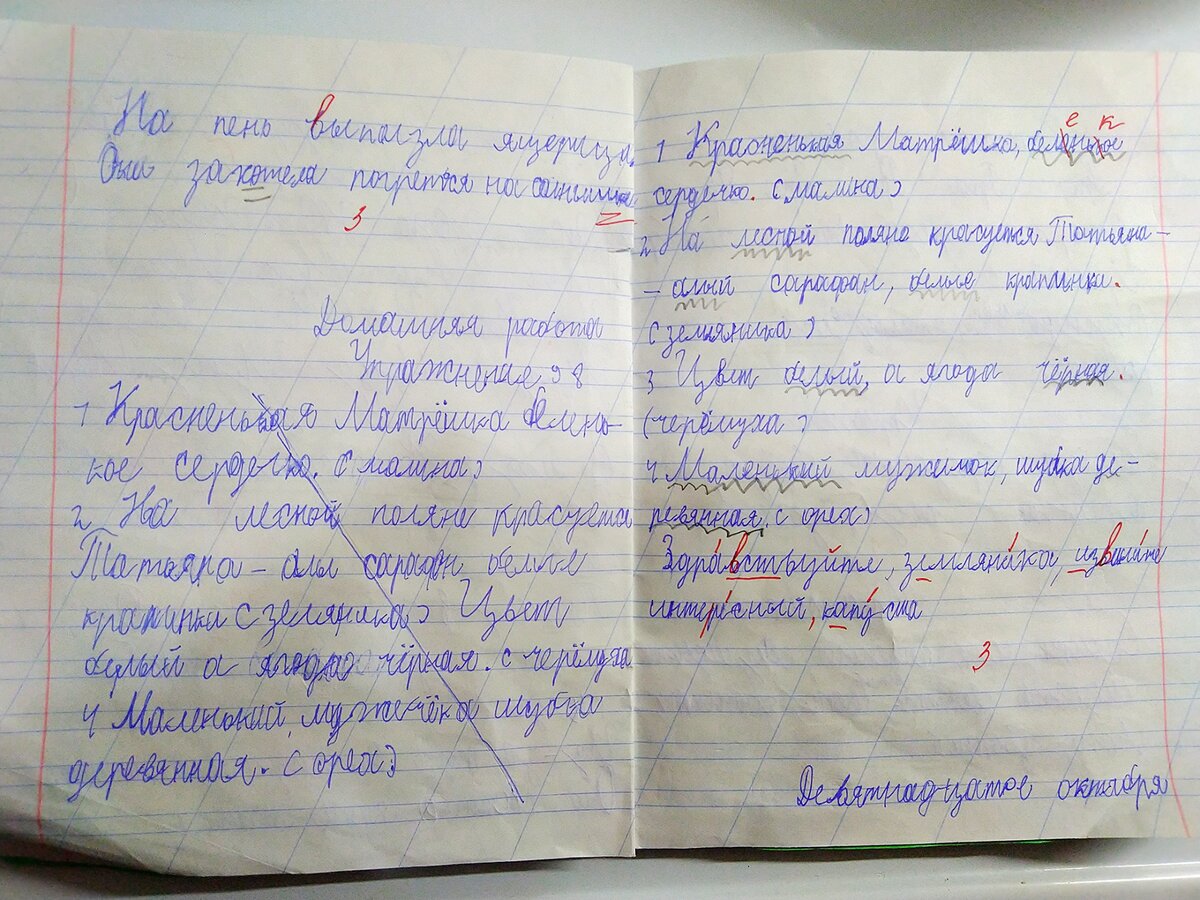 На пень выползла ящерица.
Она захотела погреться на
3
Домашняя работа
Упражнение 98
1 Красненькая Матрёшка белень-
кое сердечко. (малина)
2 На лесной поляне красуется
Татьяна – алы сарафан белые
крапинки (земляника) Цвет
белый а ягода чёрная. (черёмуха
4 Маленький, мужичёка шубка
деревянная. (орех)
1 Красненькая Матрёшка, беленькое
сердечко. (малина)
2 На лесной поляне красуется Татьяна –
– алый сарафан, белые крапинки.
(земляника)
3 Цвет белый, а ягода чёрная.
(черёмуха)
4 Маленький мужичок, шубка де-
ревянная. (орех)
Здравствуйте, земляника, извините
интересный, капуста
3
Девятнадцатое октября